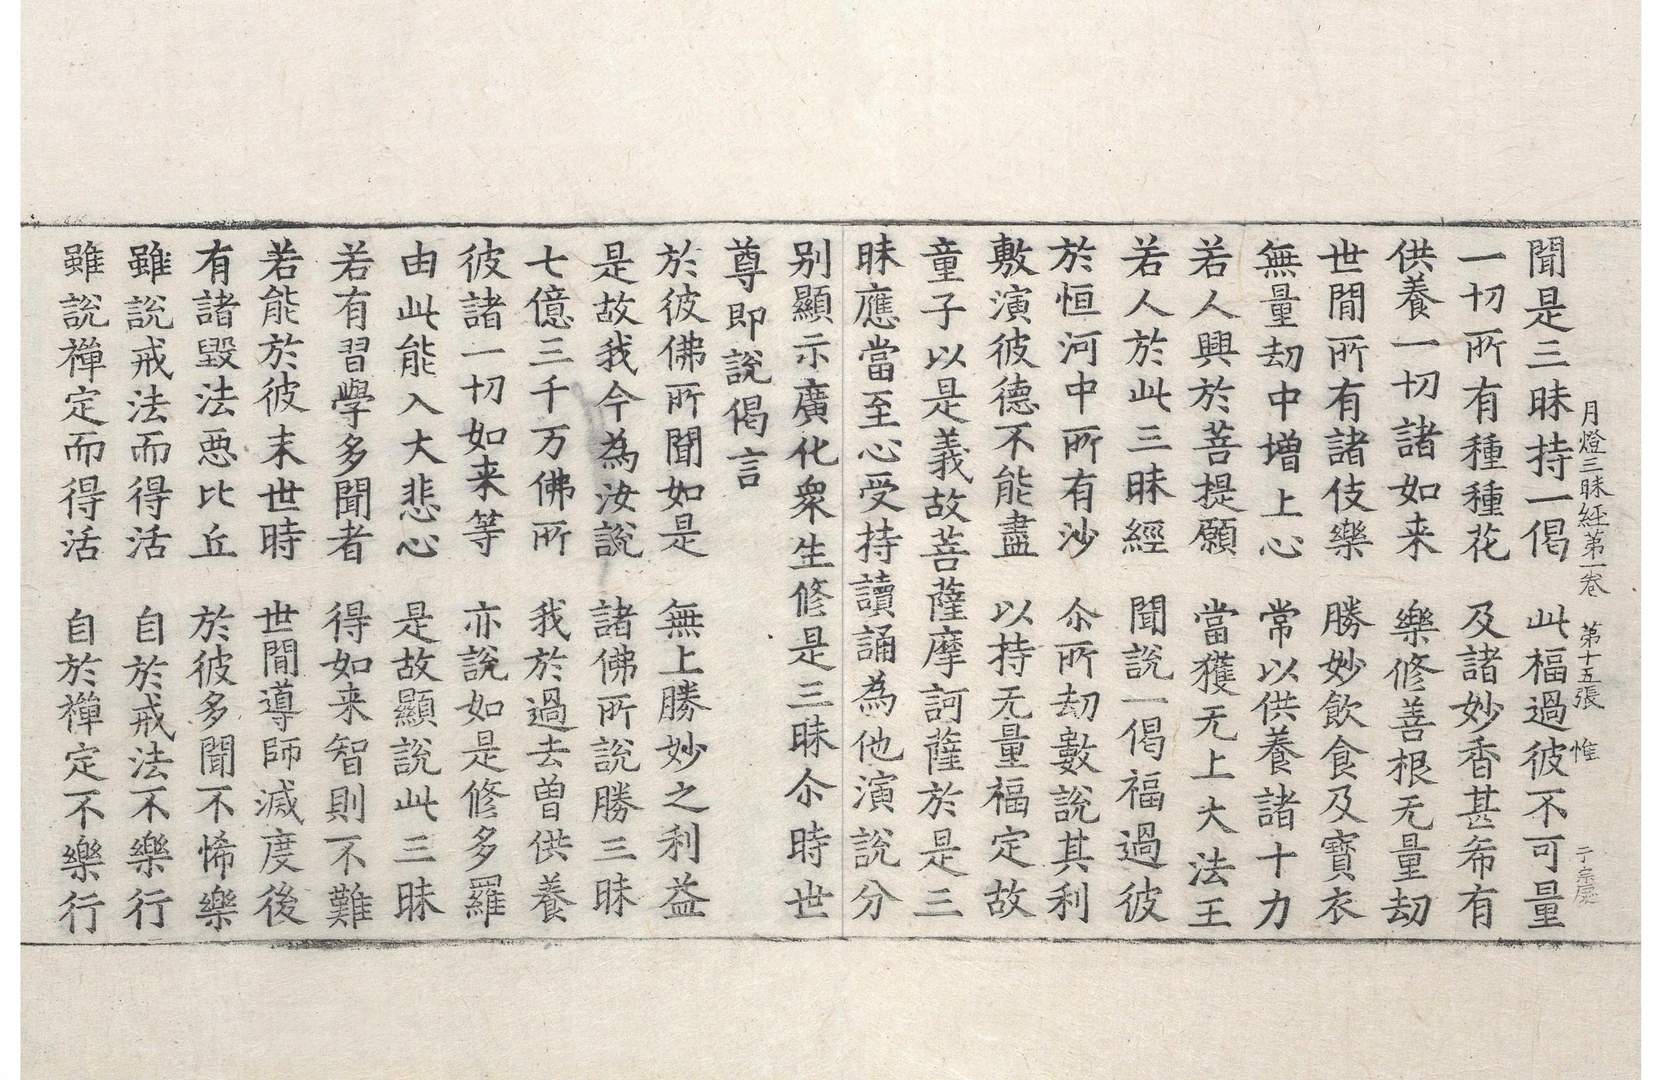 月燈三昧經第一卷　第十五張　惟
聞是三昧持一偈　此福過彼不可量
一切所有種種花　及諸妙香甚希有
供養一切諸如来　樂修善根无量劫
世閒所有諸伎樂　勝妙飲食及寶衣
無量劫中增上心　常以供養諸十力
若人興於菩提願　當獲无上大法王
若人於此三昧經　聞說一偈福過彼
於恒河中所有沙　尒所劫數說其利
敷演彼德不能盡　以持无量福定故
童子以是義故菩薩摩訶薩於是三
昧應當至心受持讀誦為他演說分
別顯示廣化衆生修是三昧尒時世
尊即說偈言
於彼佛所聞如是　無上勝妙之利益
是故我今為汝說　諸佛所說勝三昧
七億三千万佛所　我於過去曾供養
彼諸一切如来等　亦說如是修多羅
由此能入大悲心　是故顯說此三昧
若有習學多聞者　得如来智則不難
若能於彼末世時　世閒導師滅度後
有諸毀法惡比丘　於彼多聞不悕樂
雖說戒法而得活　自於戒法不樂行
雖說禪定而得活　自於禪定不樂行